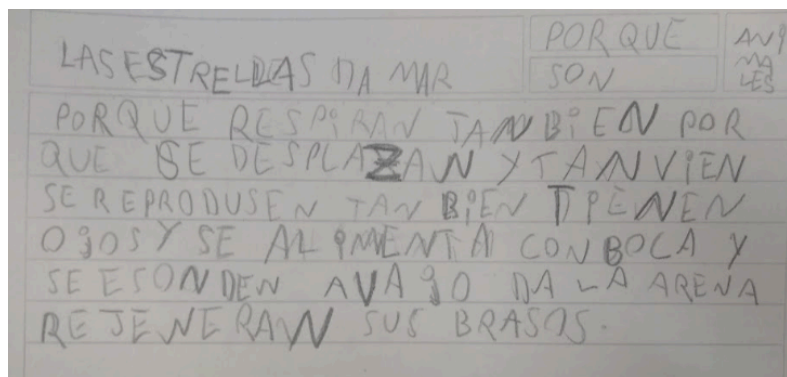 LAS ESTRELLAS DA MAR
PORQUE
SON
ANI
MA
LES
PORQUE RESPIRAN TANBIEN POR
QUE SE DESPLAZAN Y TANVIEN
SE REPRODUSEN TANBIEN TIENEN
OJOS Y SE ALIMENTA CON BOCA Y
SE ESONDEN AVAJO DA LA ARENA
REJENERAN SUS BRASOS.